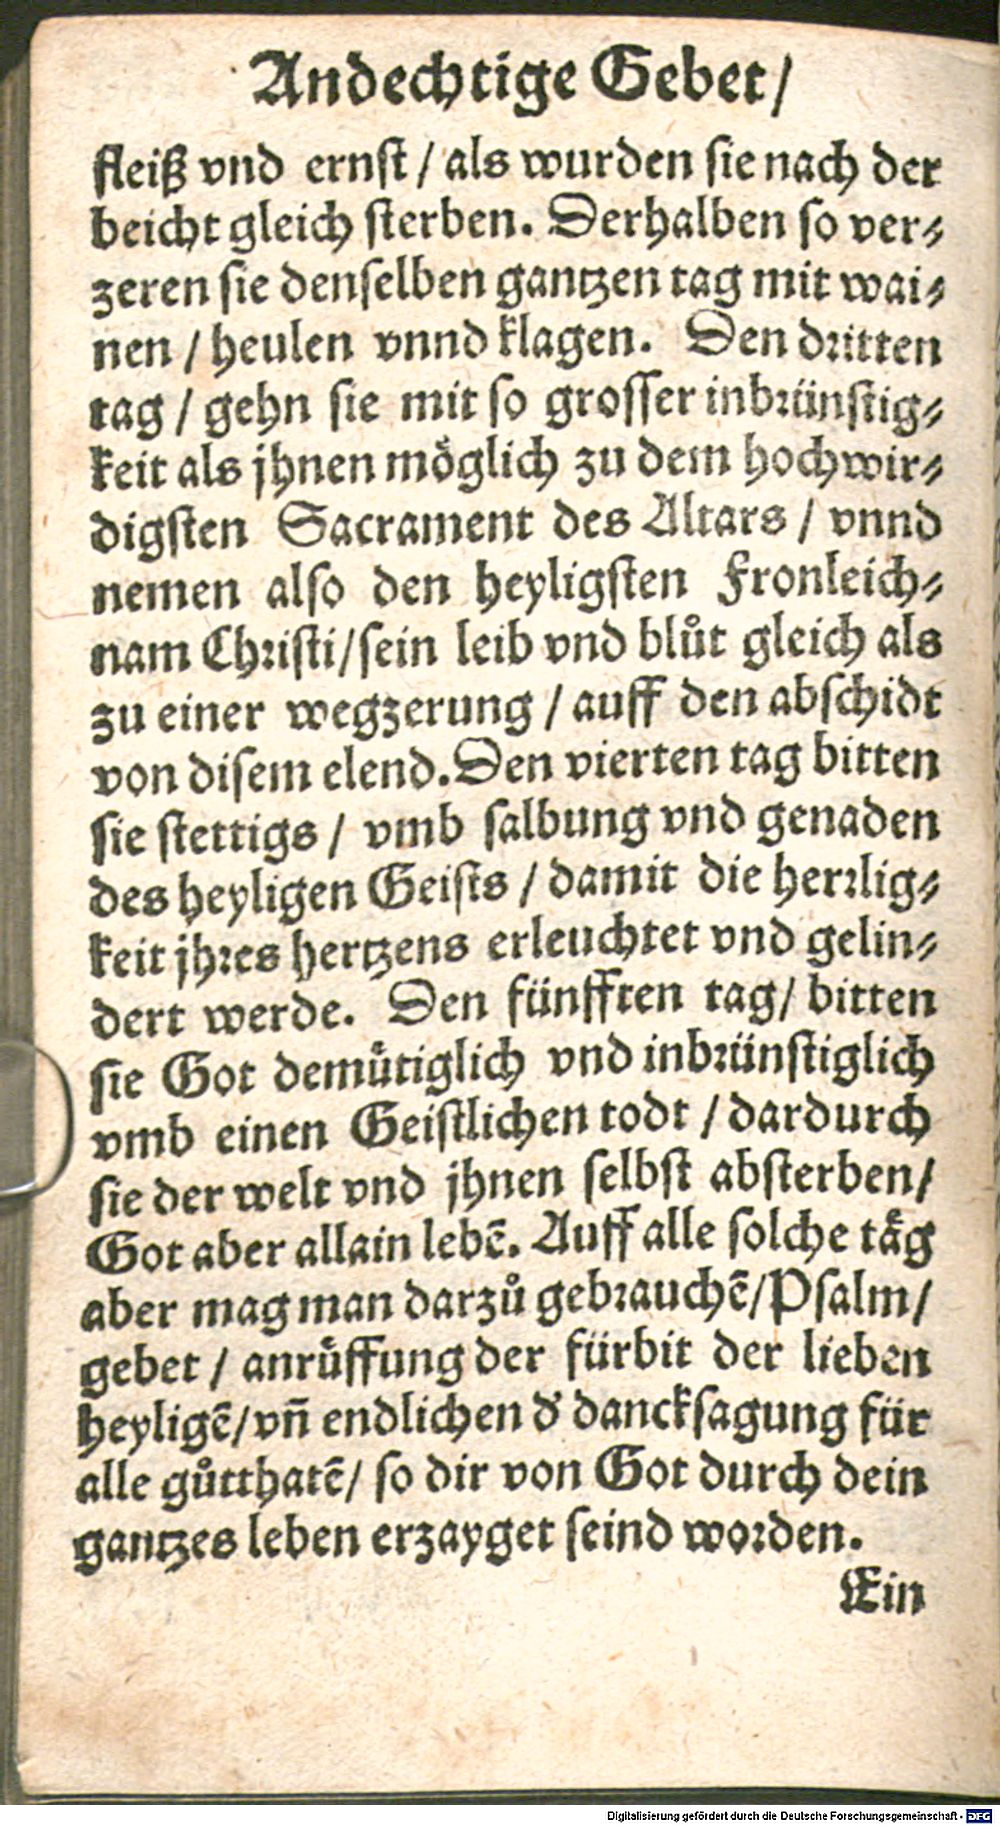 Andechtige Gebet/
fleiß vnd ernſt / als wurden ſie nach der
beicht gleich ſterben. Derhalben ſo ver⸗
zeren ſie denſelben gantzen tag mit wai⸗
nen / heulen vnnd klagen. Den dritten
tag / gehn ſie mit ſo groſſer inbrünſtig⸗
keit als jhnen möglich zu dem hochwir⸗
digſten Sacrament des Altars / vnnd
nemen alſo den heyligſten Fronleich⸗
nam Chriſti/ſein leib vnd blůt gleich als
zu einer wegzerung / auff den abſchidt
von diſem elend. Den vierten tag bitten
ſie ſtettigs / vmb ſalbung vnd genaden
des heyligen Geiſts / damit die herrlig⸗
keit jhres hertzens erleuchtet vnd gelin⸗
dert werde. Den fünfften tag/ bitten
ſie Got demuͤtiglich vnd inbrünſtiglich
vmb einen Geiſtlichen todt / dardurch
ſie der welt vnd jhnen ſelbſt abſterben/
Got aber allain lebē. Auff alle ſolche taͤg
aber mag man darzů gebrauchē/Pſalm/
gebet / anruͤffung der fürbit der lieben
heyligē/vñ endlichen dʼ danckſagung für
alle gůtthatē/ ſo dir von Got durch dein
gantzes leben erzayget ſeind worden.
Ein
Digitalisierung gefördert durch die Deutsche Forschungsgemeinschaft - DFG